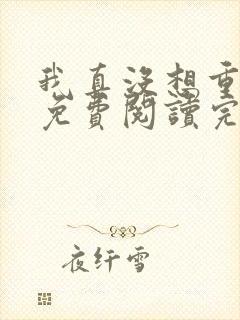 我真没想重
免費閱讀完
夜纤雪